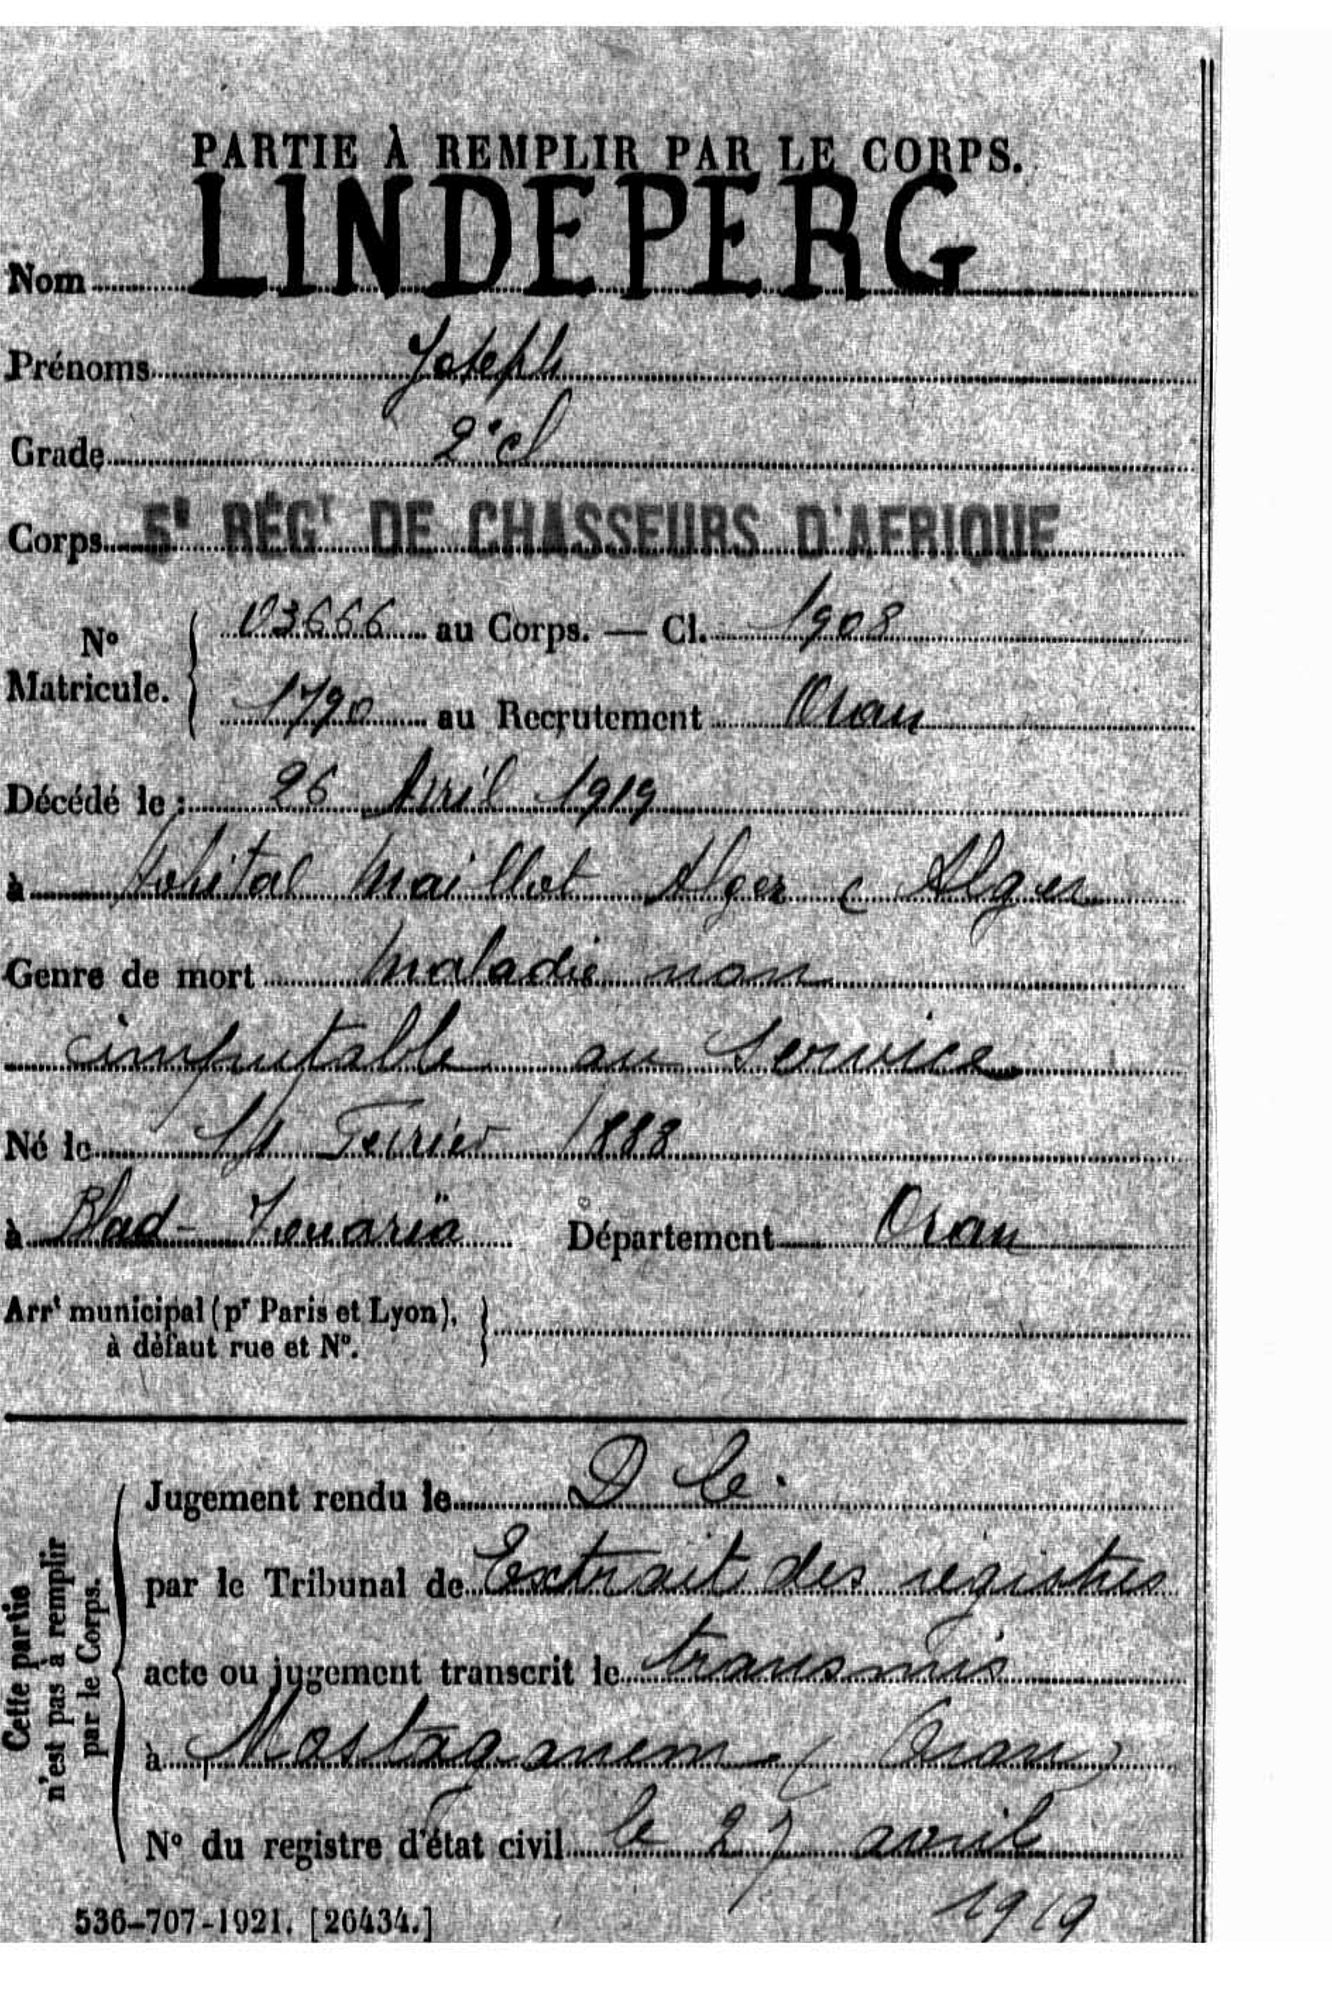 PARTIE À REMPLIR PAR LE CORPS.
Nom LINDEPERG
Prénoms Joseph
Grade 2e cl
Corps 5e RÉGt DE CHASSEURS D'AFRIQUE
No Matricule. 03666 au Corps. — Cl. 1908
1790 au Recrutement Oran
Décédé le : 26 Avril 1919
à hopital Maillot Alger ( Alger
Genre de mort Maladie non
imputable au service
Né le Fevrier 1888
à Blad-Touaria Département Oran
Arrt municipal (pr Paris et Lyon),
à défaut rue et No.
Cette partie
n'est pas à remplir
par le Corps.
Jugement rendu le
par le Tribunal de Extrait des registres
acte ou jugement transcrit le transmis
à Mostaganem (Oran)
No du registre d'état civil le 27 avril
1919
536-707-1921. [26434.]